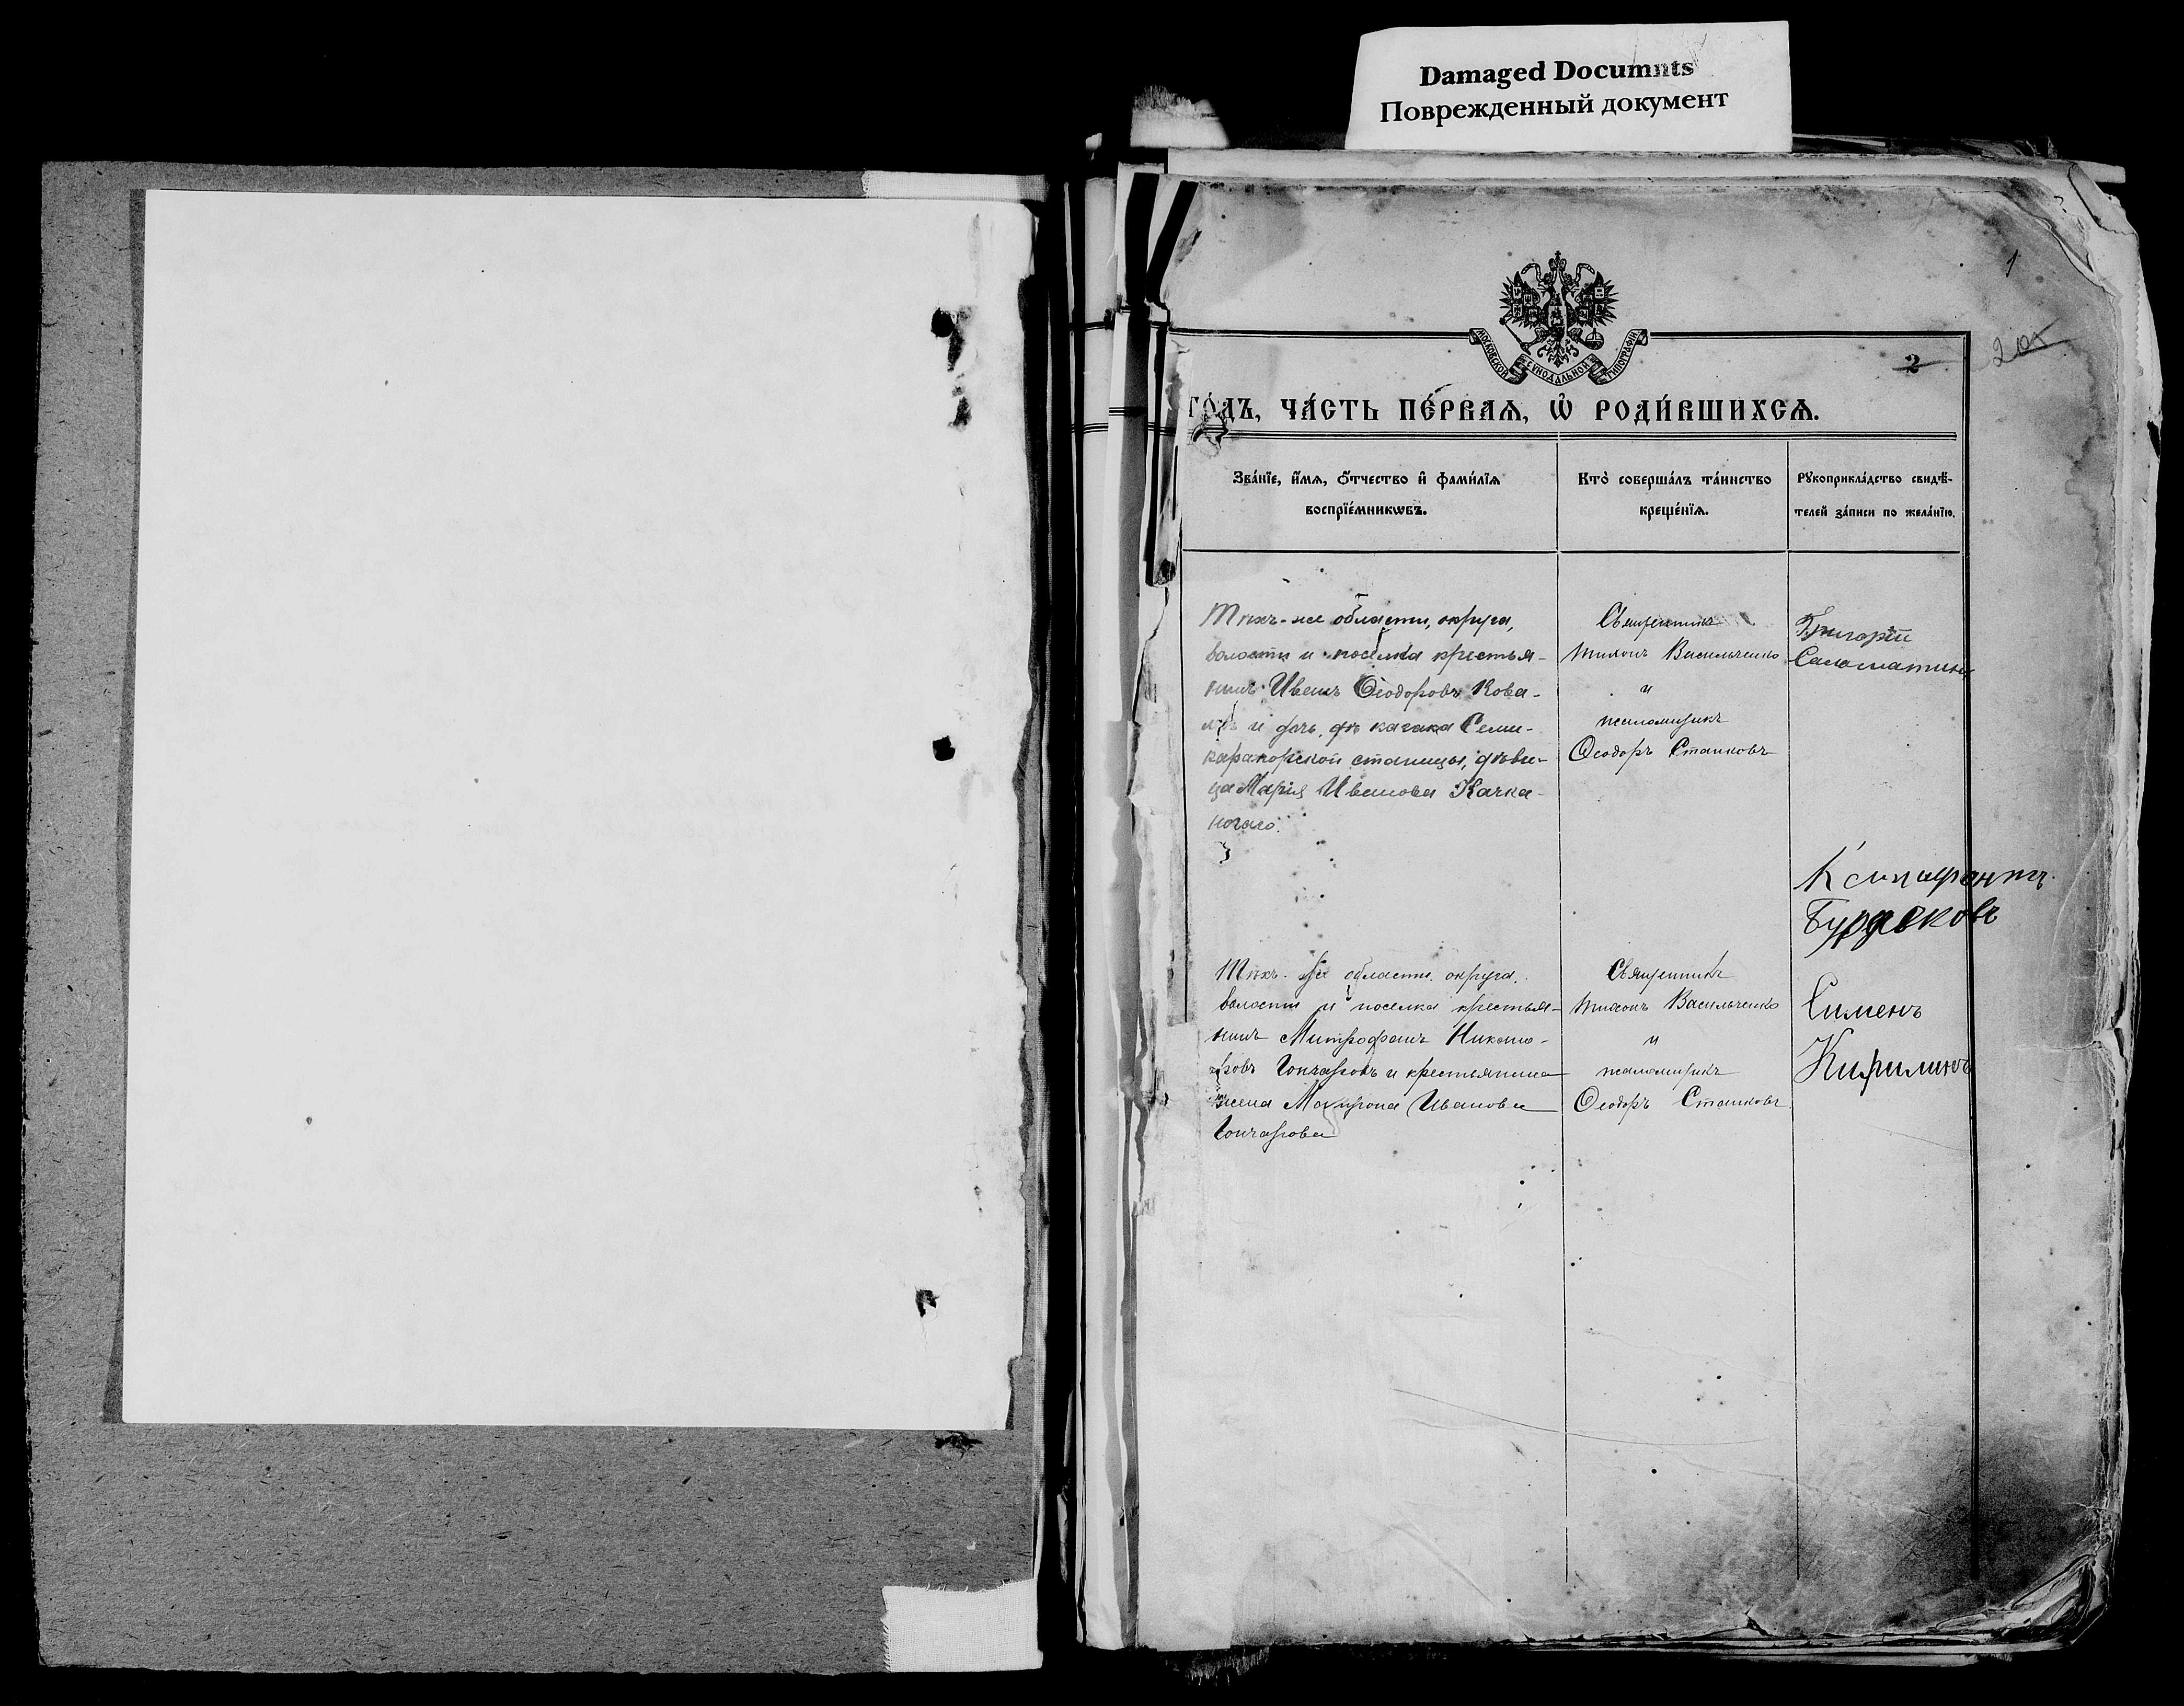 Damaged Documnts
Поврежденный документ
1
МОСКОВСКОЙ СѴНОДАЛЬНОЙ ТИПОГРАФІИ
2
205
ГО́ДЪ, ЧА́СТЬ ПЕ́РВАѦ, Ѡ҆ РОДИ́ВШИХСѦ.
Зва́нїе, и҆́мѧ, ѻ҆́тчество и҆ фами́лїѧ
воспрїе́мникѡвъ.
Кто̀ соверша́лъ та́инство
креще́нїѧ.
Рꙋкоприкла́дство свидѣ́-
телей за́писи по жела́нїю.
Тѣхъ-же области, округа,
волости и поселка крестья-
нинъ Иванъ Ѳеодоровъ Кова-
и дочь казака Семи-
каракорской станицы, дѣви-
ца Марія Иванова Качка-
Священникъ
Тихонъ Васильченко
и
псаломщикъ
Ѳеодоръ Станковъ
Григорій
Саломатинъ
Бурдяковъ
Тѣхъ-же области, округа,
волости и поселка крестья-
нинъ Митрофанъ Никано-
ровъ Гончаровъ и крестьянина
жена Матрона Иванова
Гончарова
Священникъ
Тихонъ Васильченко
и
псаломщикъ
Ѳеодоръ Станковъ
Сименъ
Кирилинъ